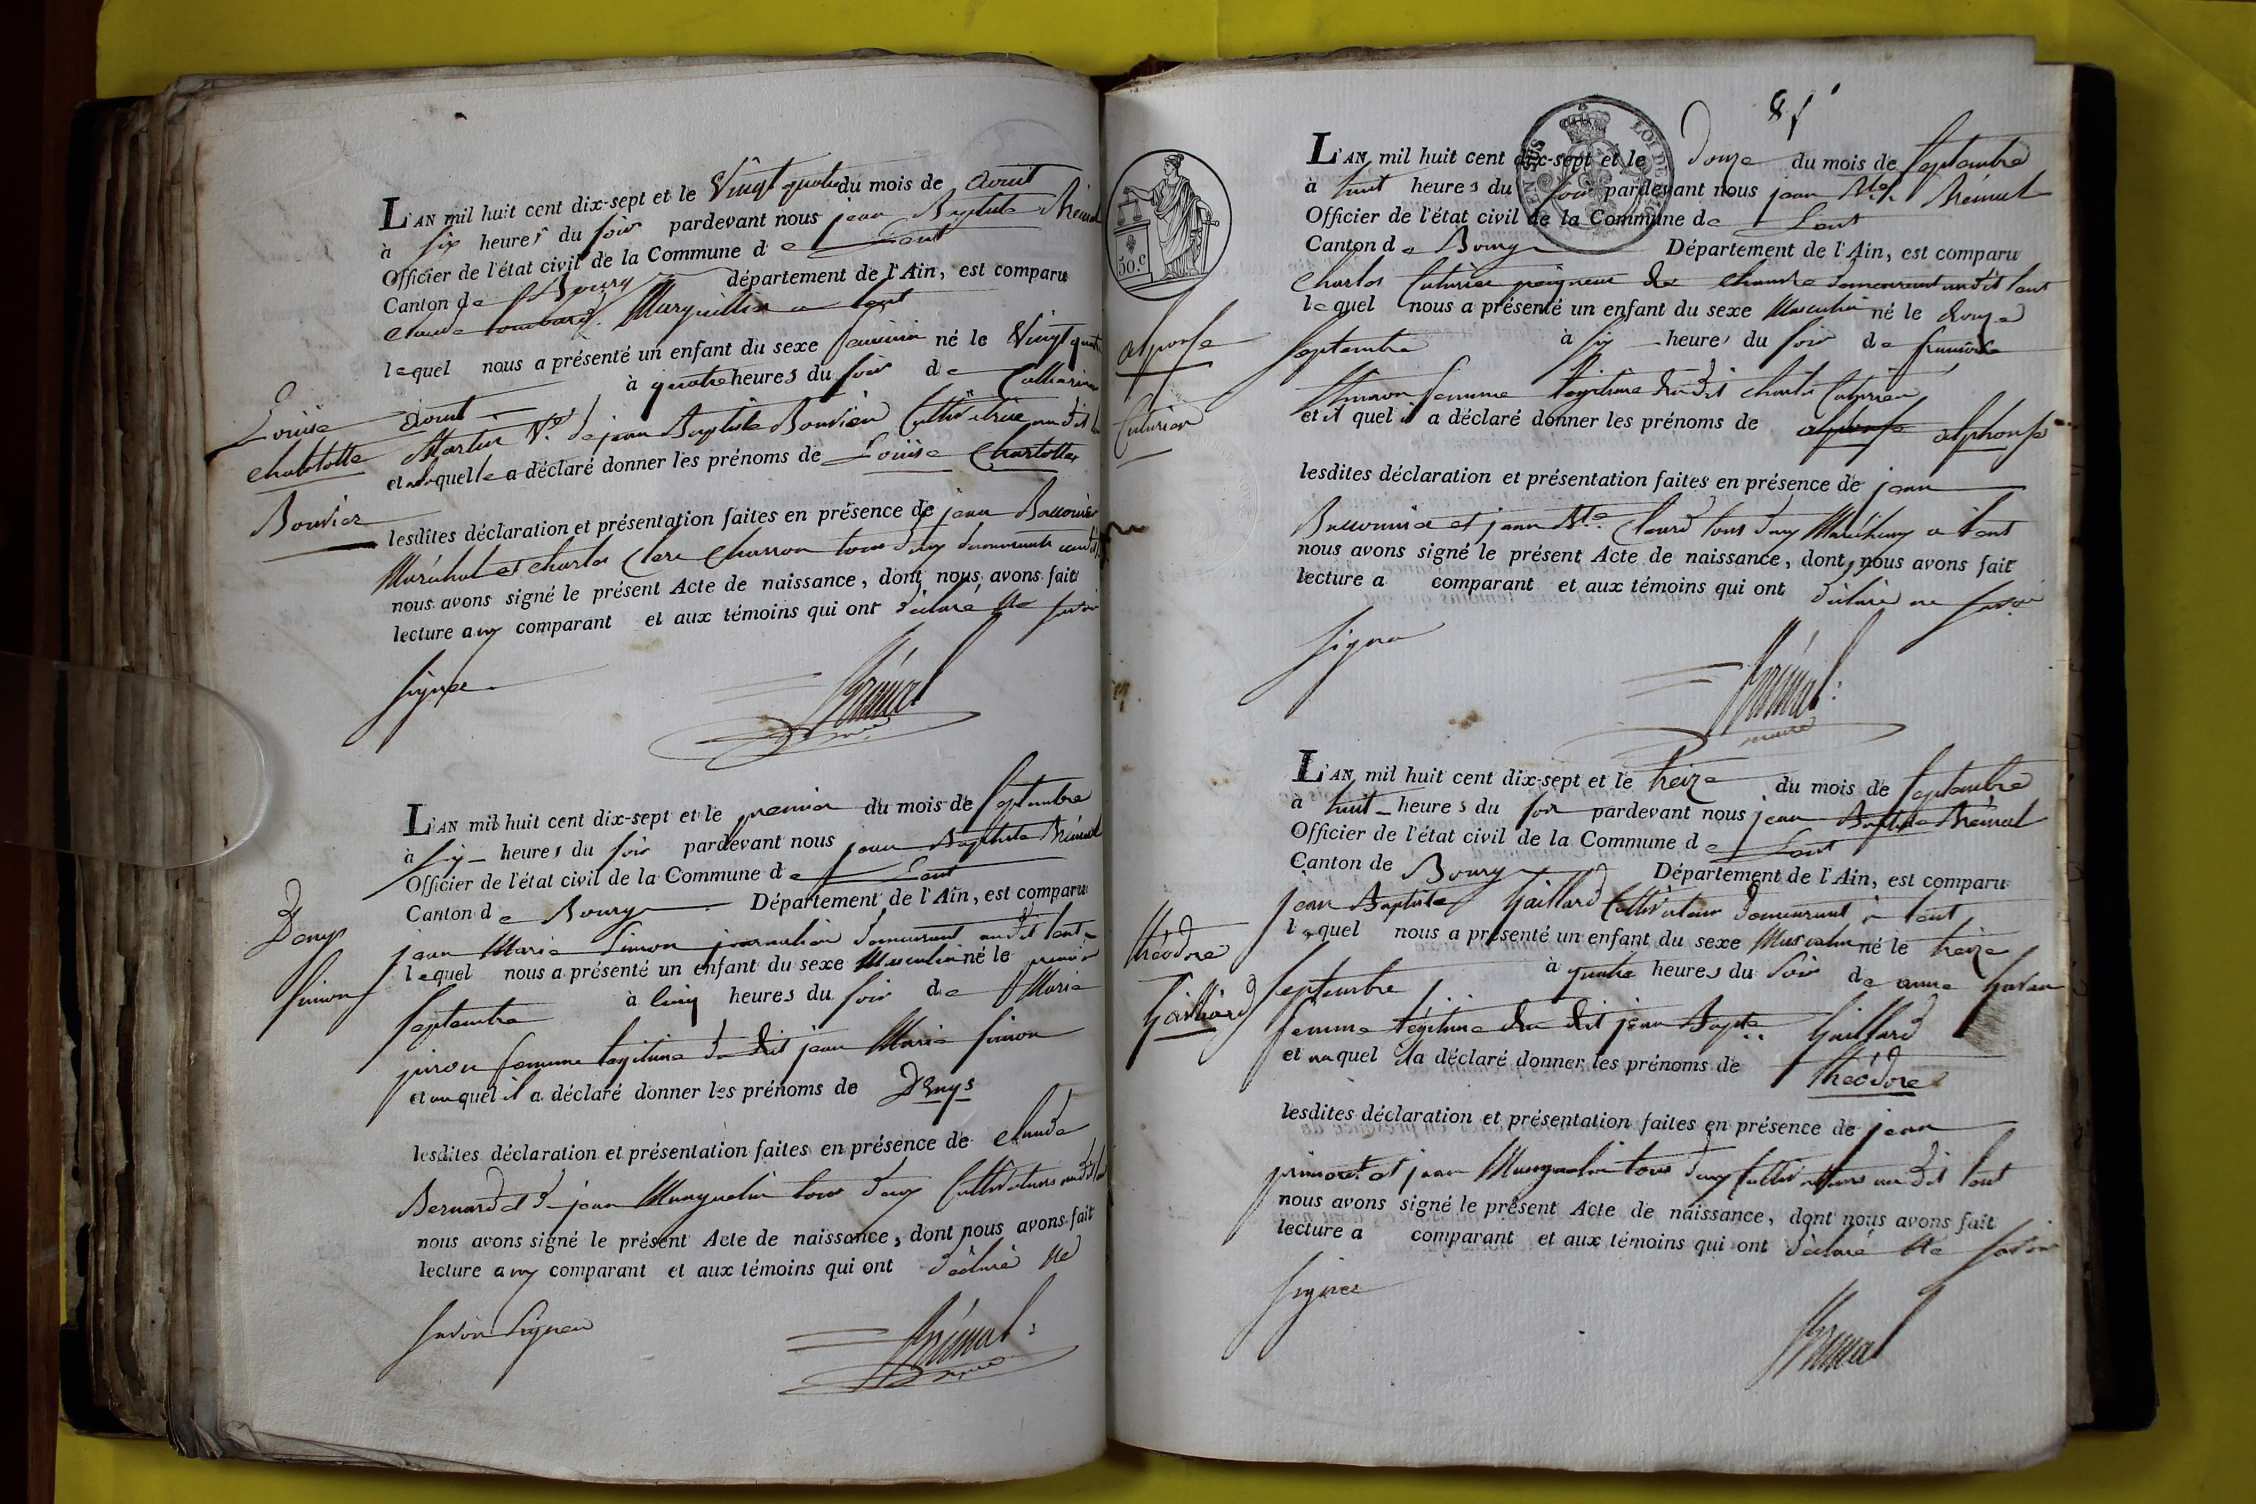 L'AN mil huit cent dix-sept et le Vingt quatre du mois de Aout
à six heures du soir pardevant nous jean Baptiste
Officier de l'état civil de la Commune de Lent
Canton de Bourg département de l'Ain, est comparu
Claude Marguillier a Lent
lequel nous a présenté un enfant du sexe feminin né le Vingt quatre
Aout à quatre heures du soir de Catharine
Louise
Charlotte
Bouvier
Martin Ve de jean Baptiste Bouvier Cultivatrice audit
et laquelle a déclaré donner les prénoms de Louise Charlotte
lesdites déclaration et présentation faites en présence de jean
Maréchal et Charles Clerc Charron tous deux demeurants audit
nous avons signé le présent Acte de naissance, dont nous avons fait
lecture au comparant et aux témoins qui ont déclaré Ne savoir
signer
L'AN mil huit cent dix-sept et le premier du mois de Septembre
à six heures du soir pardevant nous jean Baptiste
Officier de l'état civil de la Commune de Lent
Canton de Bourg Département de l'Ain, est comparu
Denys
Simon
jean Marie Simon journalier demeurant audit Lent
lequel nous a présenté un enfant du sexe Masculin né le premier
Septembre à cinq heures du soir de Marie
femme légitime du dit jean Marie Simon
et auquel il a déclaré donner les prénoms de Denys
lesdites déclaration et présentation faites en présence de Claude
Bernard et jean tous deux Cultivateurs audit
nous avons signé le présent Acte de naissance, dont nous avons fait
lecture au comparant et aux témoins qui ont déclaré Ne
savoir signer
L'AN mil huit cent dix-sept et le douze du mois de Septembre
à huit heures du soir pardevant nous jean Bte
Officier de l'état civil de la Commune de Lent
Canton de Bourg Département de l'Ain, est comparu
50.c
Charles Cuturier peigneur de Chanvre demeurant audit Lent
lequel nous a présenté un enfant du sexe Masculin né le douze
Septembre à six heures du soir de françoise
alponse
Cuturier
femme légitime du dit Charles Cuturier
et il quel il a déclaré donner les prénoms de alponse alphonse
lesdites déclaration et présentation faites en présence de jean
et jean Bte tous deux Maréchaux a Lent
nous avons signé le présent Acte de naissance, dont nous avons fait
lecture a comparant et aux témoins qui ont déclaré ne savoir
signer
maire
L'AN mil huit cent dix-sept et le treize du mois de Septembre
à huit heures du soir pardevant nous jean Baptiste
Officier de l'état civil de la Commune de Lent
Canton de Bourg Département de l'Ain, est comparu
jean Baptiste Gaillard Cultivateur demeurant à Lent
théodore
Gaillard
lequel nous a présenté un enfant du sexe Masculin né le treize
Septembre à quatre heures du soir de anne
femme légitime du dit jean Bapte Gaillard
et auquel il a déclaré donner les prénoms de théodore
lesdites déclaration et présentation faites en présence de jean
et jean tous deux Cultivateurs audit Lent
nous avons signé le présent Acte de naissance, dont nous avons fait
lecture a comparant et aux témoins qui ont déclaré Ne savoir
signer